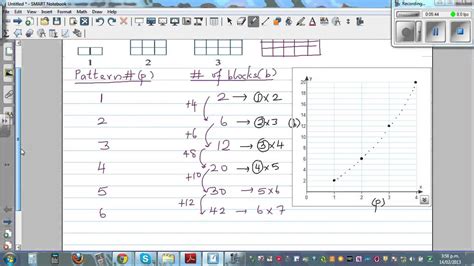 Untitled * - SMART Notebook
Recording...
00:05:44
1 2 3
Pattern#(p) # of blocks(b)
1 2 → ①×2
+4
2 6 → ②×3
+6
3 12 → ③×4
+8
4 20 → ④×5
+10
5 30 → 5×6
+12
6 42 → 6×7
y
20
18
16
14
12
10
8
6
4
2
0 1 2 3 4 x
(b)
(p)
3:58 p.m.
14/02/2013